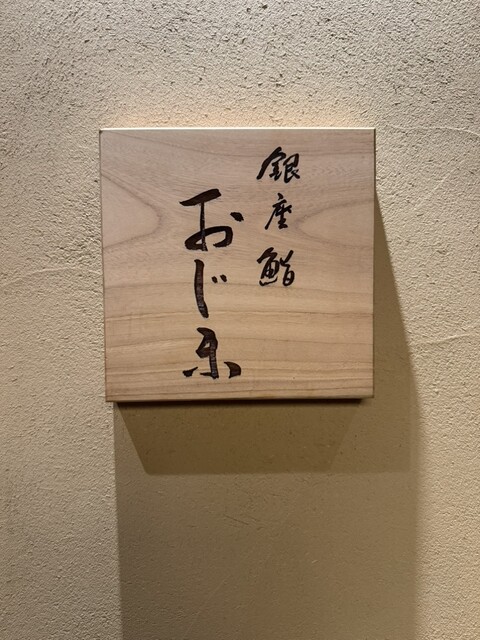 銀座鮨
おじま